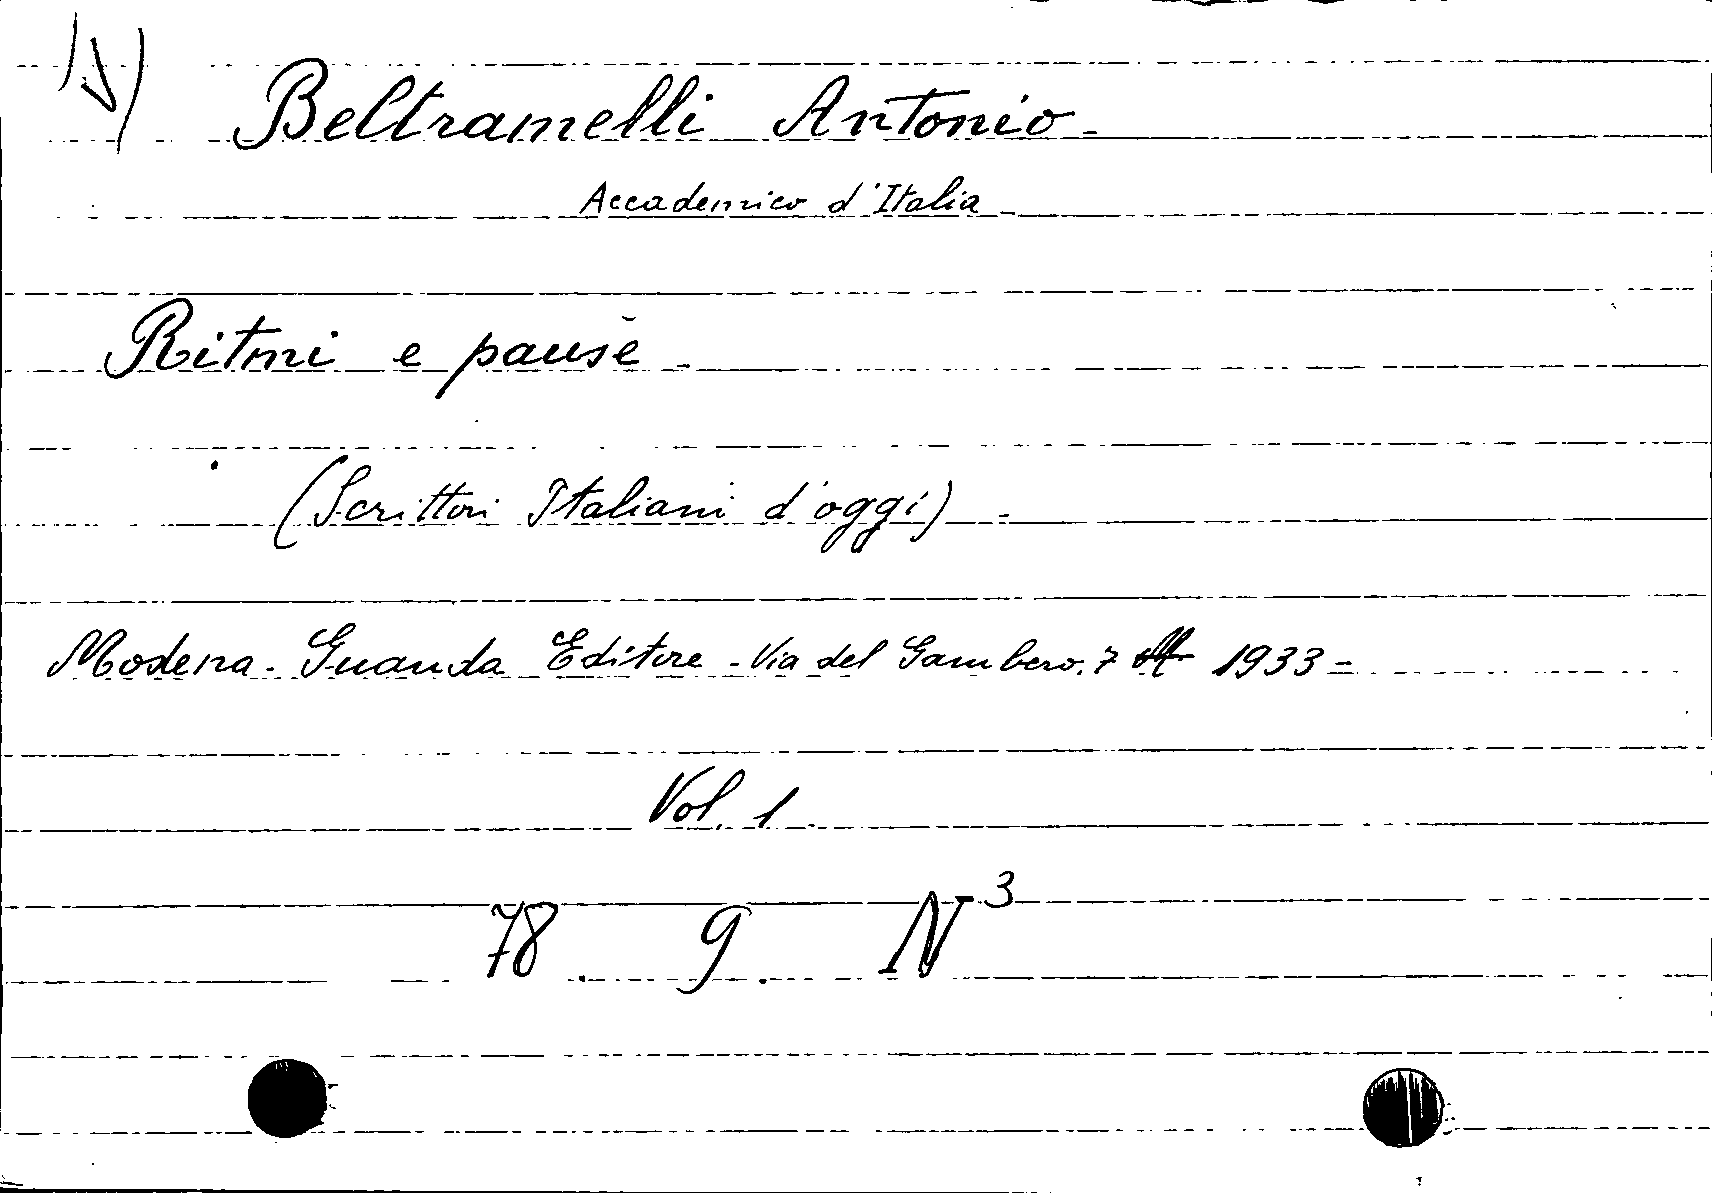 Beltramelli Antonio -
Accademico d'Italia -
Ritmi e pause -
(Scrittori Italiani d'oggi) -
Modena - Guanda Editore - Via del Gambero. 7 1933 -
Vol. 1
78. 9. N³